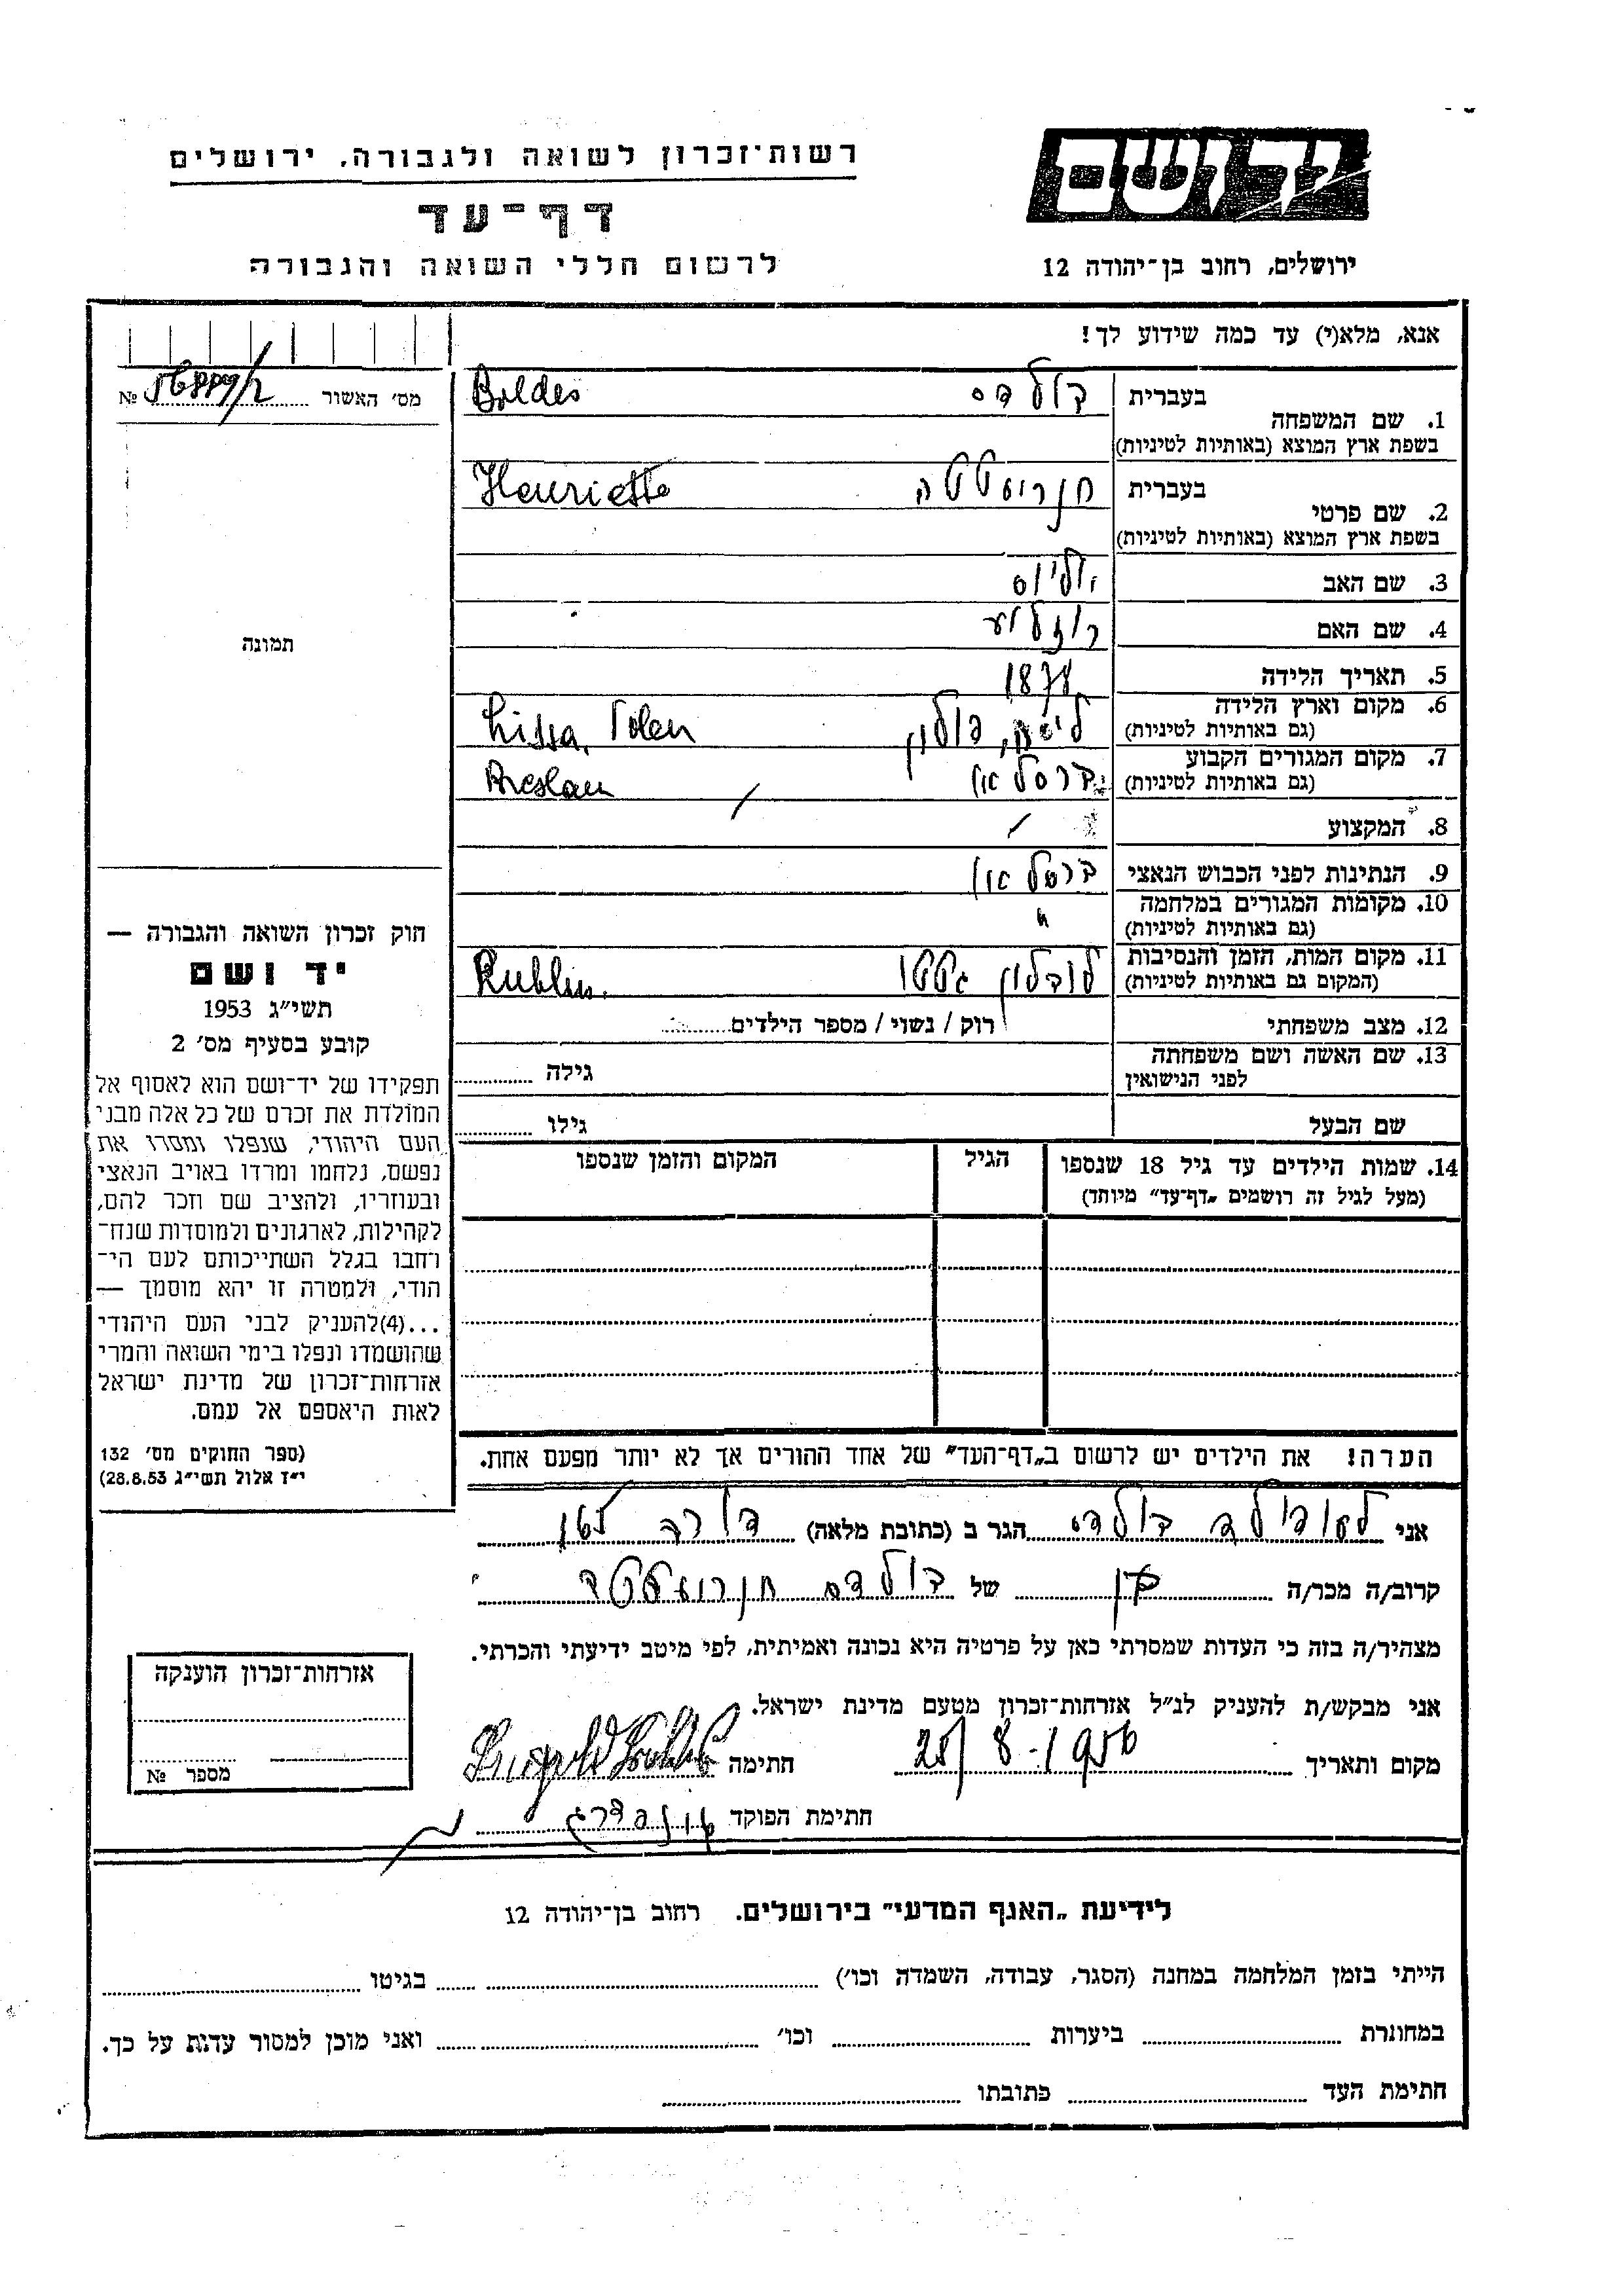 רשות־זכרון לשואה ולגבורה, ירושלים
דף־עד
לרשום חללי השואה והגבורה
יד ושם
ירושלים, רחוב בן־יהודה 12
אנא, מלא(י) עד כמה שידוע לך!
מס׳ האשור № /2
תמונה
1. שם המשפחה בעברית בולדס Boldes
בשפת ארץ המוצא (באותיות לטיניות)
2. שם פרטי בעברית חנריאטה Henriette
בשפת ארץ המוצא (באותיות לטיניות)
3. שם האב יוליוס
4. שם האם
5. תאריך הלידה 1878
6. מקום וארץ הלידה ליסה, פולין Lissa, Polen
(גם באותיות לטיניות)
7. מקום המגורים הקבוע ברסלאו Breslau
(גם באותיות לטיניות)
8. המקצוע /
9. הנתינות לפני הכבוש הנאצי ברסלאו
10. מקומות המגורים במלחמה "
(גם באותיות לטיניות)
11. מקום המות, הזמן והנסיבות לובלין גטו Lublin.
(המקום גם באותיות לטיניות)
12. מצב משפחתי רוק / נשוי / מספר הילדים
13. שם האשה ושם משפחתה גילה
לפני הנישואין
שם הבעל גילו
14. שמות הילדים עד גיל 18 שנספו הגיל המקום והזמן שנספו
(מעל לגיל זה רושמים „דף־עד” מיוחד)
חוק זכרון השואה והגבורה —
יד ושם
תשי״ג 1953
קובע בסעיף מס׳ 2
תפקידו של יד־ושם הוא לאסוף אל
המולדת את זכרם של כל אלה מבני
העם היהודי, שנפלו ומסרו את
נפשם, נלחמו ומרדו באויב הנאצי
ובעוזריו, ולהציב שם וזכר להם,
לקהילות, לארגונים ולמוסדות שנח־
רחבו בגלל השתייכותם לעם הי־
הודי, ולמטרה זו יהא מוסמך —
...(4)להעניק לבני העם היהודי
שהושמדו ונפלו בימי השואה והמרי
אזרחות־זכרון של מדינת ישראל
לאות היאספם אל עמם.
(ספר החוקים מס׳ 132
י״ז אלול תשי״ג 28.8.53)
הערה! את הילדים יש לרשום ב„דף־העד” של אחד ההורים אך לא יותר מפעם אחת.
אני לאופולד בולדס הגר ב (כתובת מלאה)
קרוב/ה מכר/ה בן של בולדס חנריאטה
מצהיר/ה בזה כי העדות שמסרתי כאן על פרטיה היא נכונה ואמיתית, לפי מיטב ידיעתי והכרתי.
אני מבקש/ת להעניק לנ״ל אזרחות־זכרון מטעם מדינת ישראל.
מקום ותאריך חתימה
חתימת הפוקד
אזרחות־זכרון הוענקה
מספר №
לידיעת „האגף המדעי” בירושלים. רחוב בן־יהודה 12
הייתי בזמן המלחמה במחנה (הסגר, עבודה, השמדה וכו׳) בגיטו
במחתרת ביערות וכו׳ ואני מוכן למסור עדות על כך.
חתימת העד כתובתו